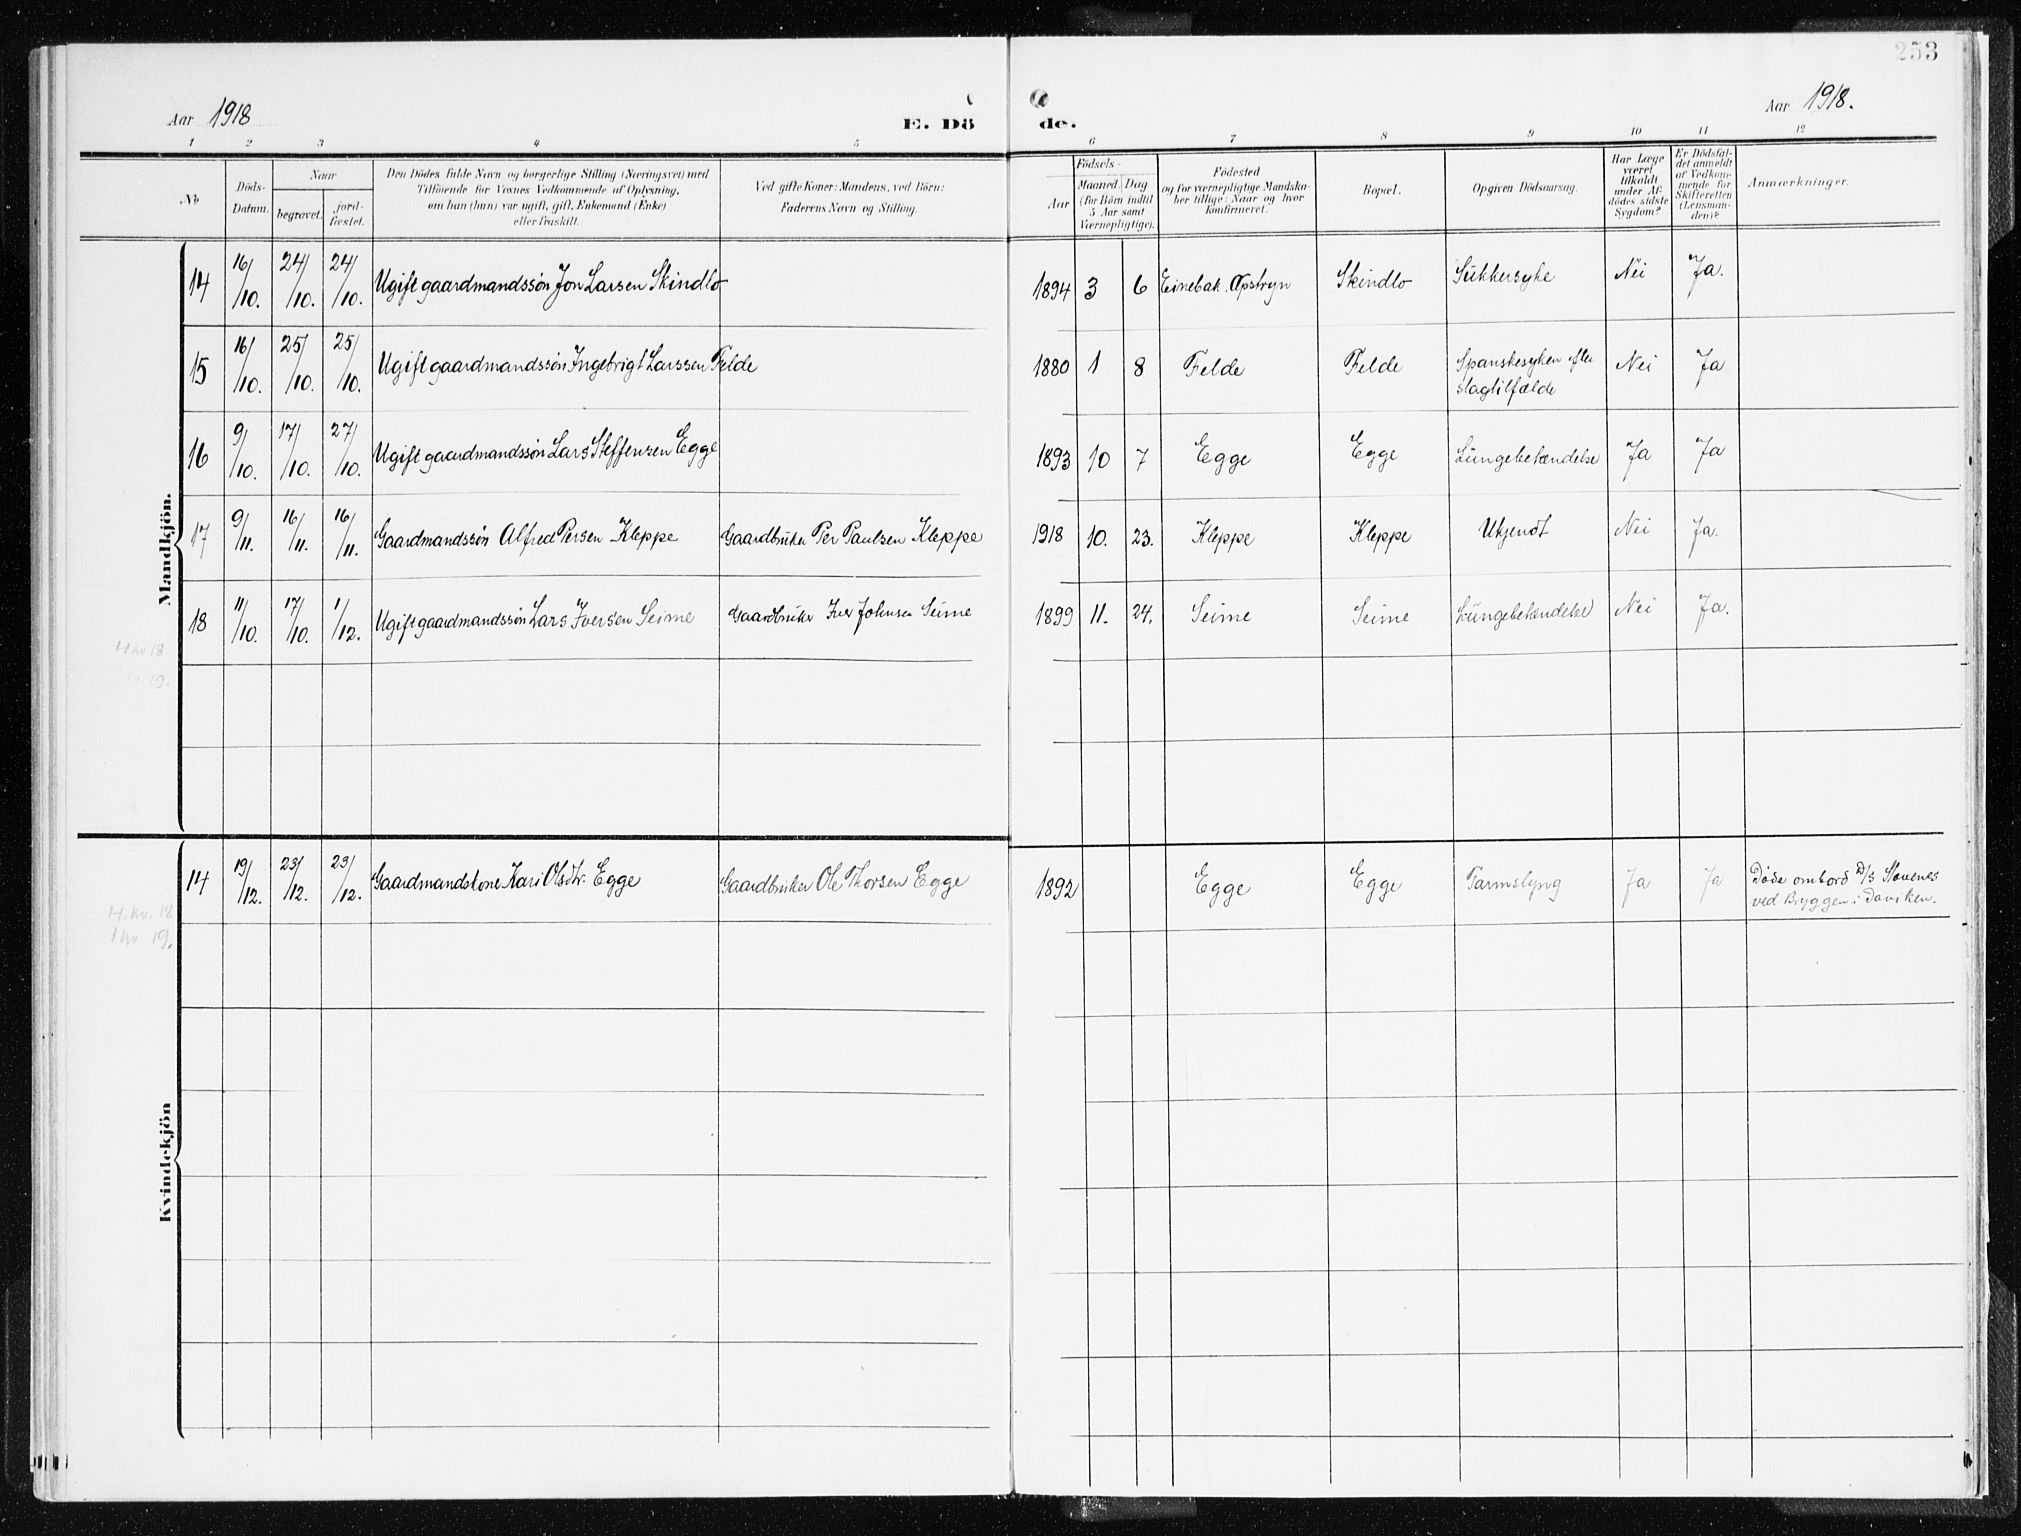 253
Aar 1918
E. Dö
de.
Aar 1918.
1 2 3 4 5 6 7 8 9 10 11 12
No
Döds-
Datum.
Naar
begravet.
jord-
fæstet.
Den Dödes fulde Navn og borgerlige Stilling (Næringsvei) med
Tilföiende for Voxnes Vedkommende af Oplysning,
om han (hun) var ugift, gift, Enkemand (Enke)
eller fraskilt.
Ved gifte Koner: Mandens, ved Börn:
Faderens Navn og Stilling.
Födsels-
Aar
Maaned. Dag
(for Börn indtil
5 Aar samt
Værnepligtige).
Födested
og for værnepligtige Mandska-
ber tillige: Naar og hvor
konfirmeret.
Bopæl.
Opgiven Dödsaarsag.
Har Læge
været
tilkaldt
under Af-
dödes sidste
Sygdom?
Er Dödsfal-
det anmeldt
af Vedkom-
mende for
Skifteretten
(Lensman-
den)?
Anmærkninger.
Mandkjön.
14 16/10. 24/10. 24/10. Ugift gaardmandssön Jon Larsen Skindlo 1894 3 6 Einebak. Opstryn Skindlo Sukkersyke Nei Ja.
15 16/10. 25/10. 25/10. Ugift gaardmandssön Ingebrigt Larssen Felde 1880 1 8 Felde Felde Spanskesyken efter Nei Ja
slagtilfælde
16 9/10. 17/10. 27/10. Ugift gaardmandssön Lars Steffensen Egge 1893 10 7 Egge Egge Lungebetændelse Ja Ja
17 9/11. 16/11. 16/11. Gaardmandssön Alfred Persen Kleppe Gaardbruker Per Paulsen Kleppe 1918 10. 23. Kleppe Kleppe Ukjendt Nei Ja.
18 11/10. 17/10. 1/12. Ugift gaardmandssön Lars Iversen Seime Gaardbruker Iver Johnsen Seime 1899 11. 24. Seime Seime Lungebetændelse Nei Ja.
4 kv 18
19.
Kvindekjön
14 19/12. 23/12. 23/12. Gaardmandskone Kari Olsdtr. Egge Gaardbruker Ole Thorsen Egge 1892 Egge Egge Tarmslyng Ja Ja Döde ombord D/S Stavenes
ved Bryggen i Daviken.
4. kv. 18
1 kv 19.